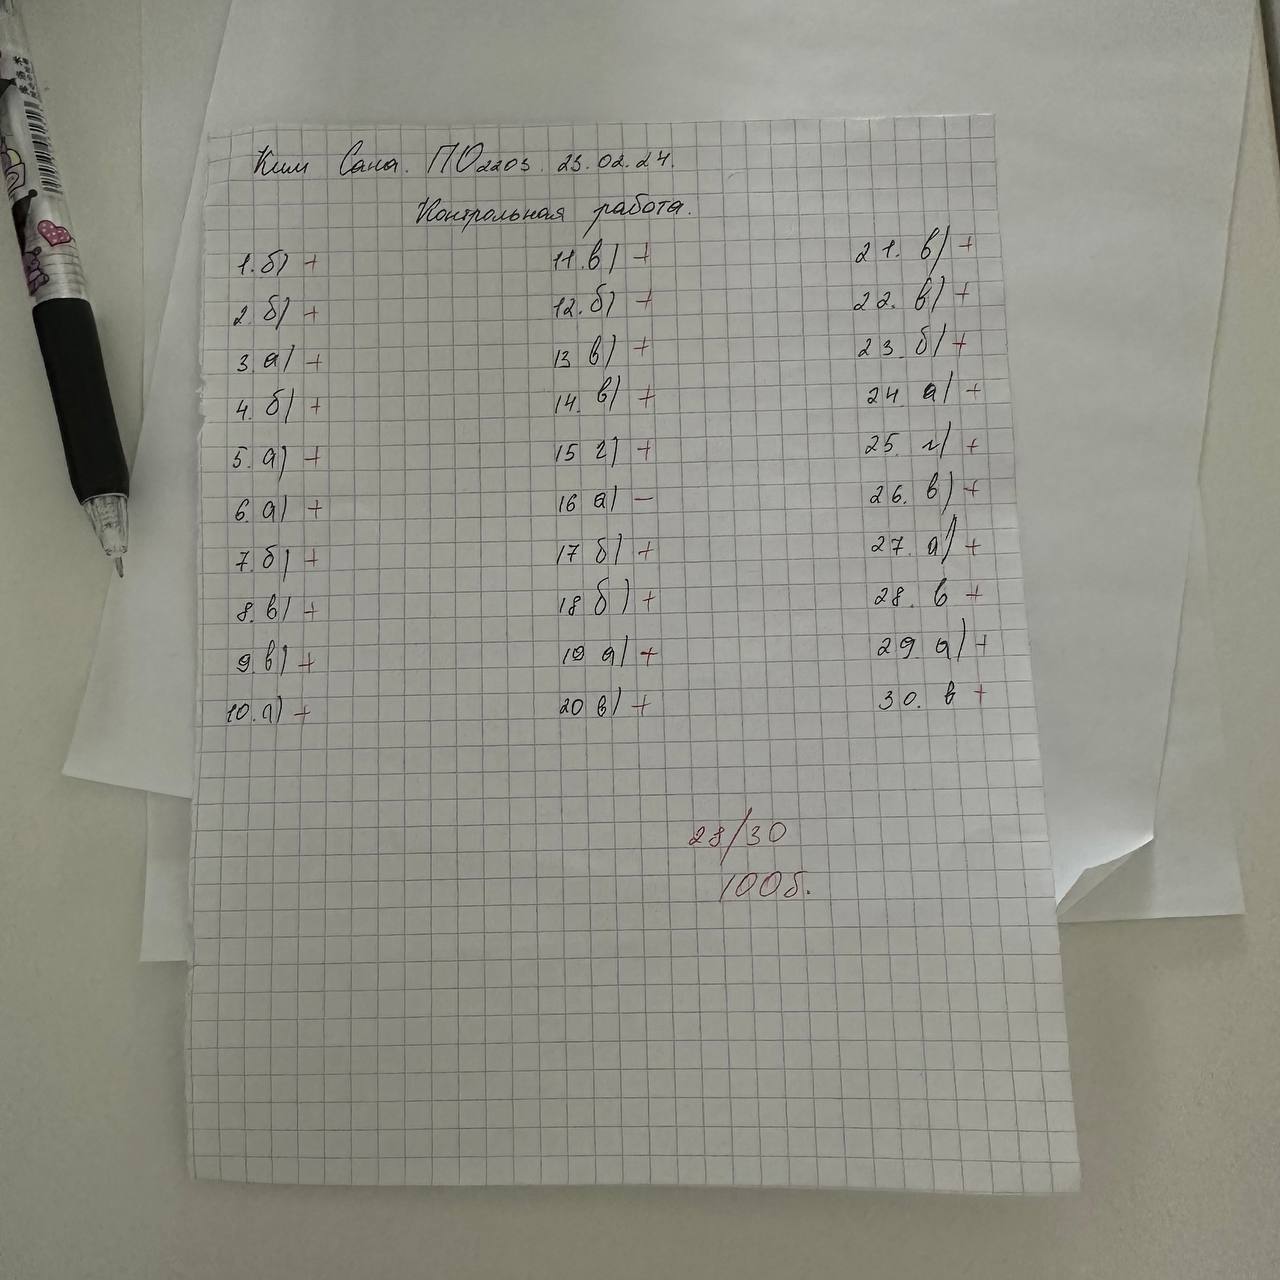 Ким Сана. ПО2203. 23.02.24.
Контрольная работа.
1. б) +
2. б) +
3. а) +
4. б) +
5. а) +
6. а) +
7. б) +
8. в) +
9. в) +
10. а) +
11. в) +
12. б) +
13 в) +
14. в) +
15 г) +
16 а) –
17 б) +
18 б) +
19 а) +
20 в) +
21. в) +
22. в) +
23. б) +
24 а) +
25. г) +
26. в) +
27. а) +
28. в +
29. а) +
30. в +
28/30
100б.